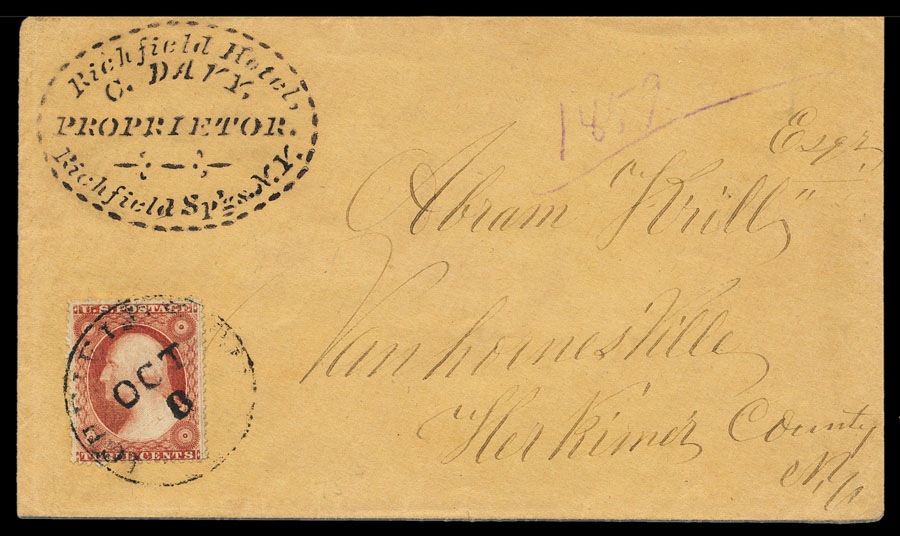 Richfield Hotel,
C. DAVY,
PROPRIETOR.
Richfield Sp'gs. N.Y.
1859
Esqr,
Abram
Vanhornesville
Herkimer County
N.Y.
U.S. POSTAGE
OCT
8
THREE CENTS